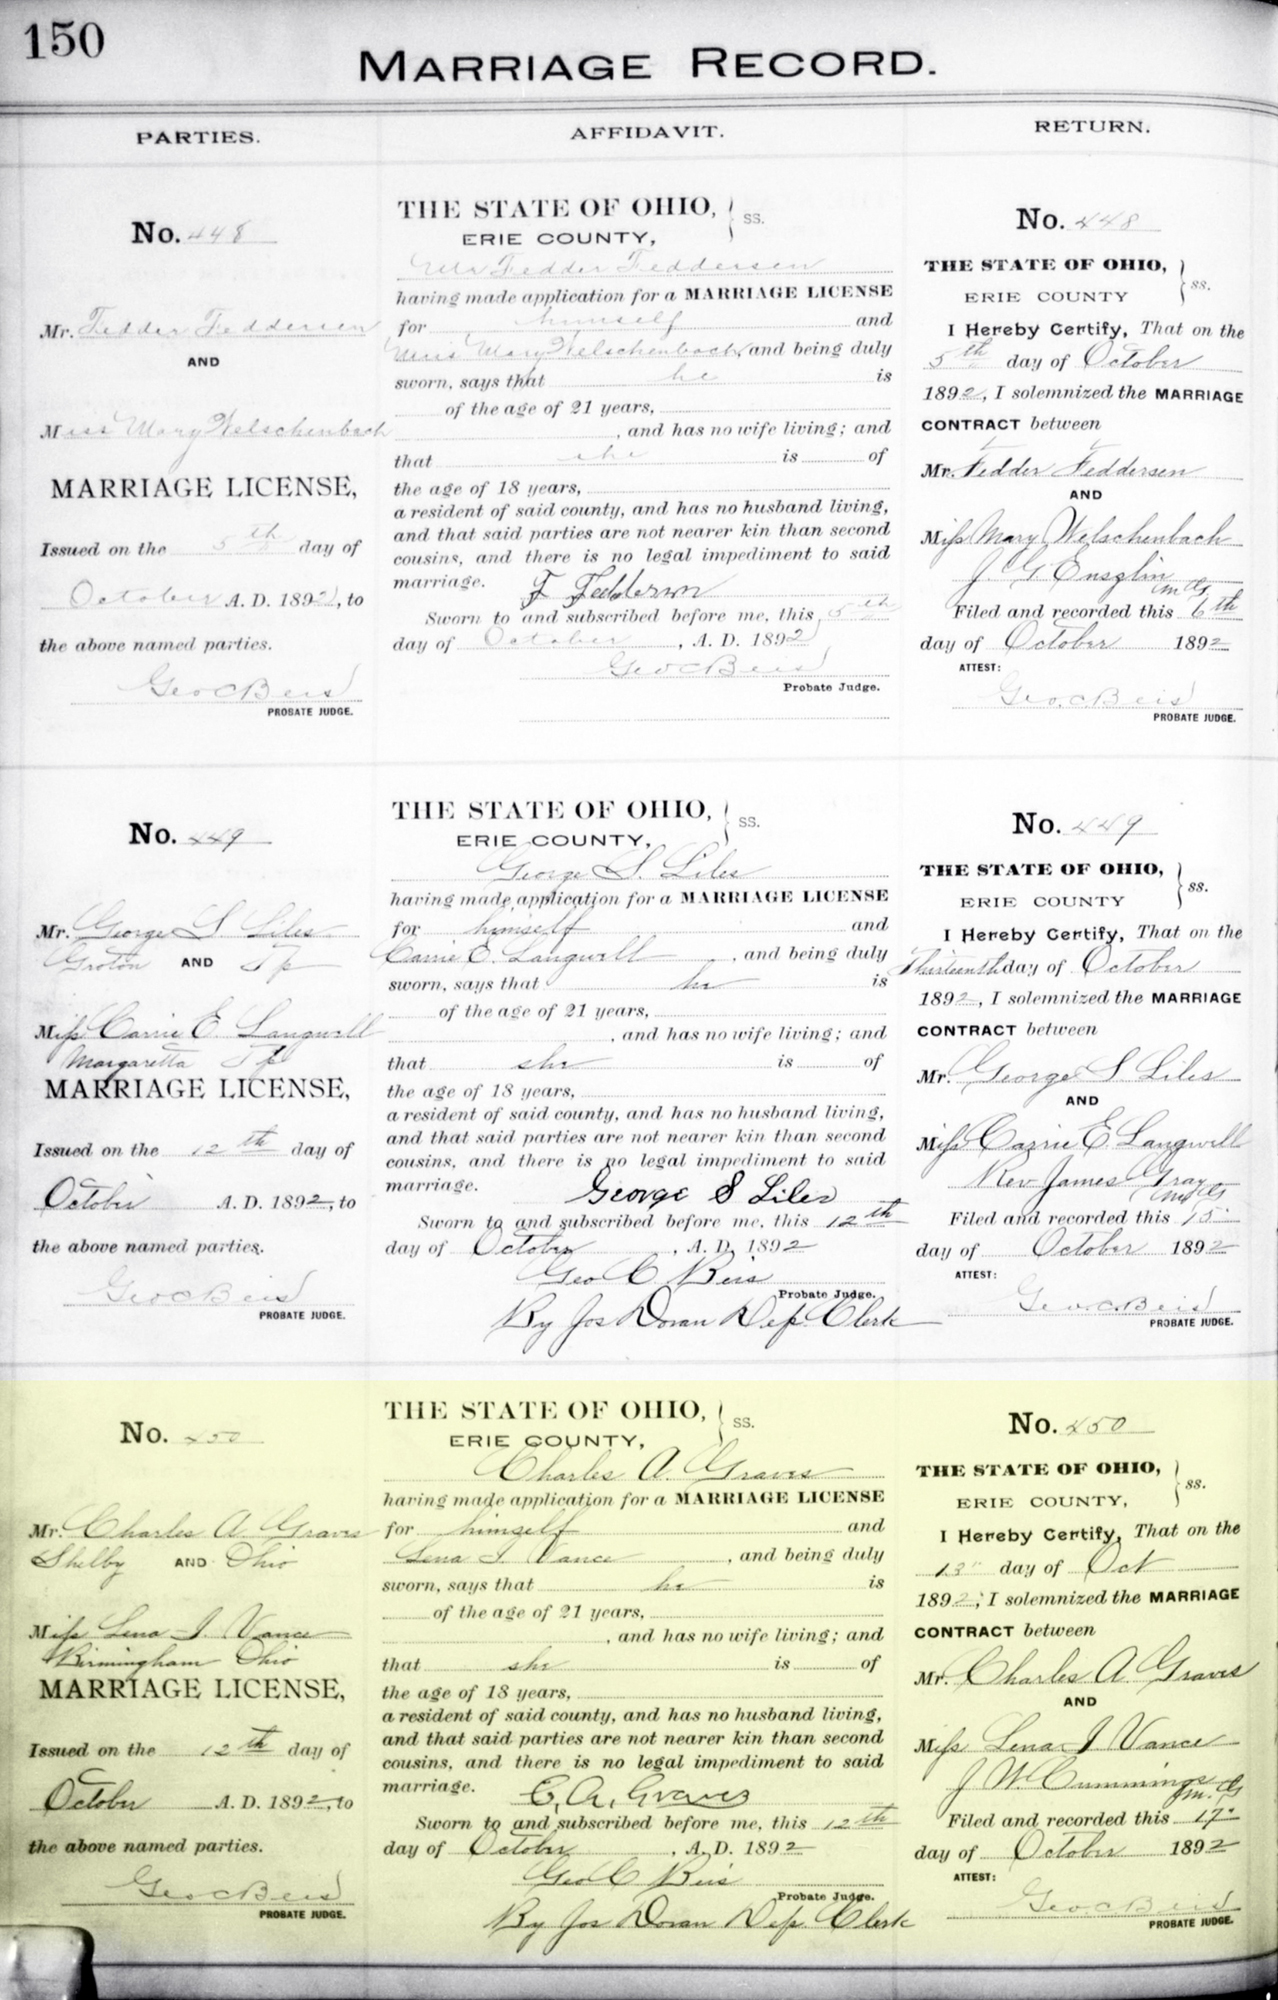 150
MARRIAGE RECORD.
PARTIES.
AFFIDAVIT.
RETURN.
No. 448
Mr. Fedder Feddersen
AND
Miss Mary Welschenbach
MARRIAGE LICENSE,
Issued on the 5th day of
October A. D. 1892, to
the above named parties.
Geo C Beis
PROBATE JUDGE.
THE STATE OF OHIO, } ss.
ERIE COUNTY,
Mr Fedder Feddersen
having made application for a MARRIAGE LICENSE
for himself and
Miss Mary Welschenbach, and being duly
sworn, says that he is
of the age of 21 years,
, and has no wife living; and
that she is of
the age of 18 years,
a resident of said county, and has no husband living,
and that said parties are not nearer kin than second
cousins, and there is no legal impediment to said
marriage. F Feddersen
Sworn to and subscribed before me, this 5th
day of October, A. D. 1892
Geo C Beis
Probate Judge.
No. 448
THE STATE OF OHIO, } ss.
ERIE COUNTY
I Hereby Certify, That on the
5th day of October
1892, I solemnized the MARRIAGE
CONTRACT between
Mr. Fedder Feddersen
AND
Miss Mary Welschenbach
J. G. Enszlin
M G
Filed and recorded this 6th
day of October 1892
ATTEST:
Geo. C Beis
PROBATE JUDGE.
No. 449
Mr. George S Liles
Groton AND Tp
Miss Carrie E. Langwell
Margaretta Tp
MARRIAGE LICENSE,
Issued on the 12th day of
October A. D. 1892, to
the above named parties.
Geo C Beis
PROBATE JUDGE.
THE STATE OF OHIO, } ss.
ERIE COUNTY,
George S. Liles
having made application for a MARRIAGE LICENSE
for himself and
Carrie E. Langwell, and being duly
sworn, says that he is
of the age of 21 years,
, and has no wife living; and
that she is of
the age of 18 years,
a resident of said county, and has no husband living,
and that said parties are not nearer kin than second
cousins, and there is no legal impediment to said
marriage. George S Liles
Sworn to and subscribed before me, this 12th
day of October, A. D. 1892
Geo C Beis
Probate Judge.
By Jos Doran Dep. Clerk
No. 449
THE STATE OF OHIO, } ss.
ERIE COUNTY
I Hereby Certify, That on the
Thirteenth day of October
1892, I solemnized the MARRIAGE
CONTRACT between
Mr. George S Liles
AND
Miss Carrie E. Langwell
Rev James Gray
M G
Filed and recorded this 15
day of October 1892
ATTEST:
Geo. C. Beis
PROBATE JUDGE.
No. 450
Mr. Charles A. Graves
Shelby AND Ohio
Miss Lena I. Vance
Birmingham Ohio
MARRIAGE LICENSE,
Issued on the 12th day of
October A. D. 1892, to
the above named parties.
Geo C Beis
PROBATE JUDGE.
THE STATE OF OHIO, } ss.
ERIE COUNTY,
Charles A. Graves
having made application for a MARRIAGE LICENSE
for himself and
Lena I. Vance, and being duly
sworn, says that he is
of the age of 21 years,
, and has no wife living; and
that she is of
the age of 18 years,
a resident of said county, and has no husband living,
and that said parties are not nearer kin than second
cousins, and there is no legal impediment to said
marriage. C. A. Graves
Sworn to and subscribed before me, this 12th
day of October, A. D. 1892
Geo C Beis
Probate Judge.
By Jos Doran Dep. Clerk
No. 450
THE STATE OF OHIO, } ss.
ERIE COUNTY,
I Hereby Certify, That on the
13" day of Oct
1892, I solemnized the MARRIAGE
CONTRACT between
Mr. Charles A. Graves
AND
Miss Lena I Vance
J W Cummings
M. G
Filed and recorded this 17"
day of October 1892
ATTEST:
Geo. C Beis
PROBATE JUDGE.